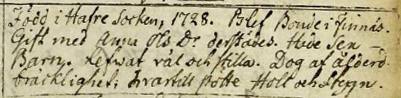 Född i Hafre Socken, 1728. Blef Bonde i finnäs.
Gift med Anna Ols Dr derstädes. Hade Sex
Barn. Lefwat väl och stilla. Dog af ålderd.
bräcklighet; hwartill stötte Holt och Stygn.